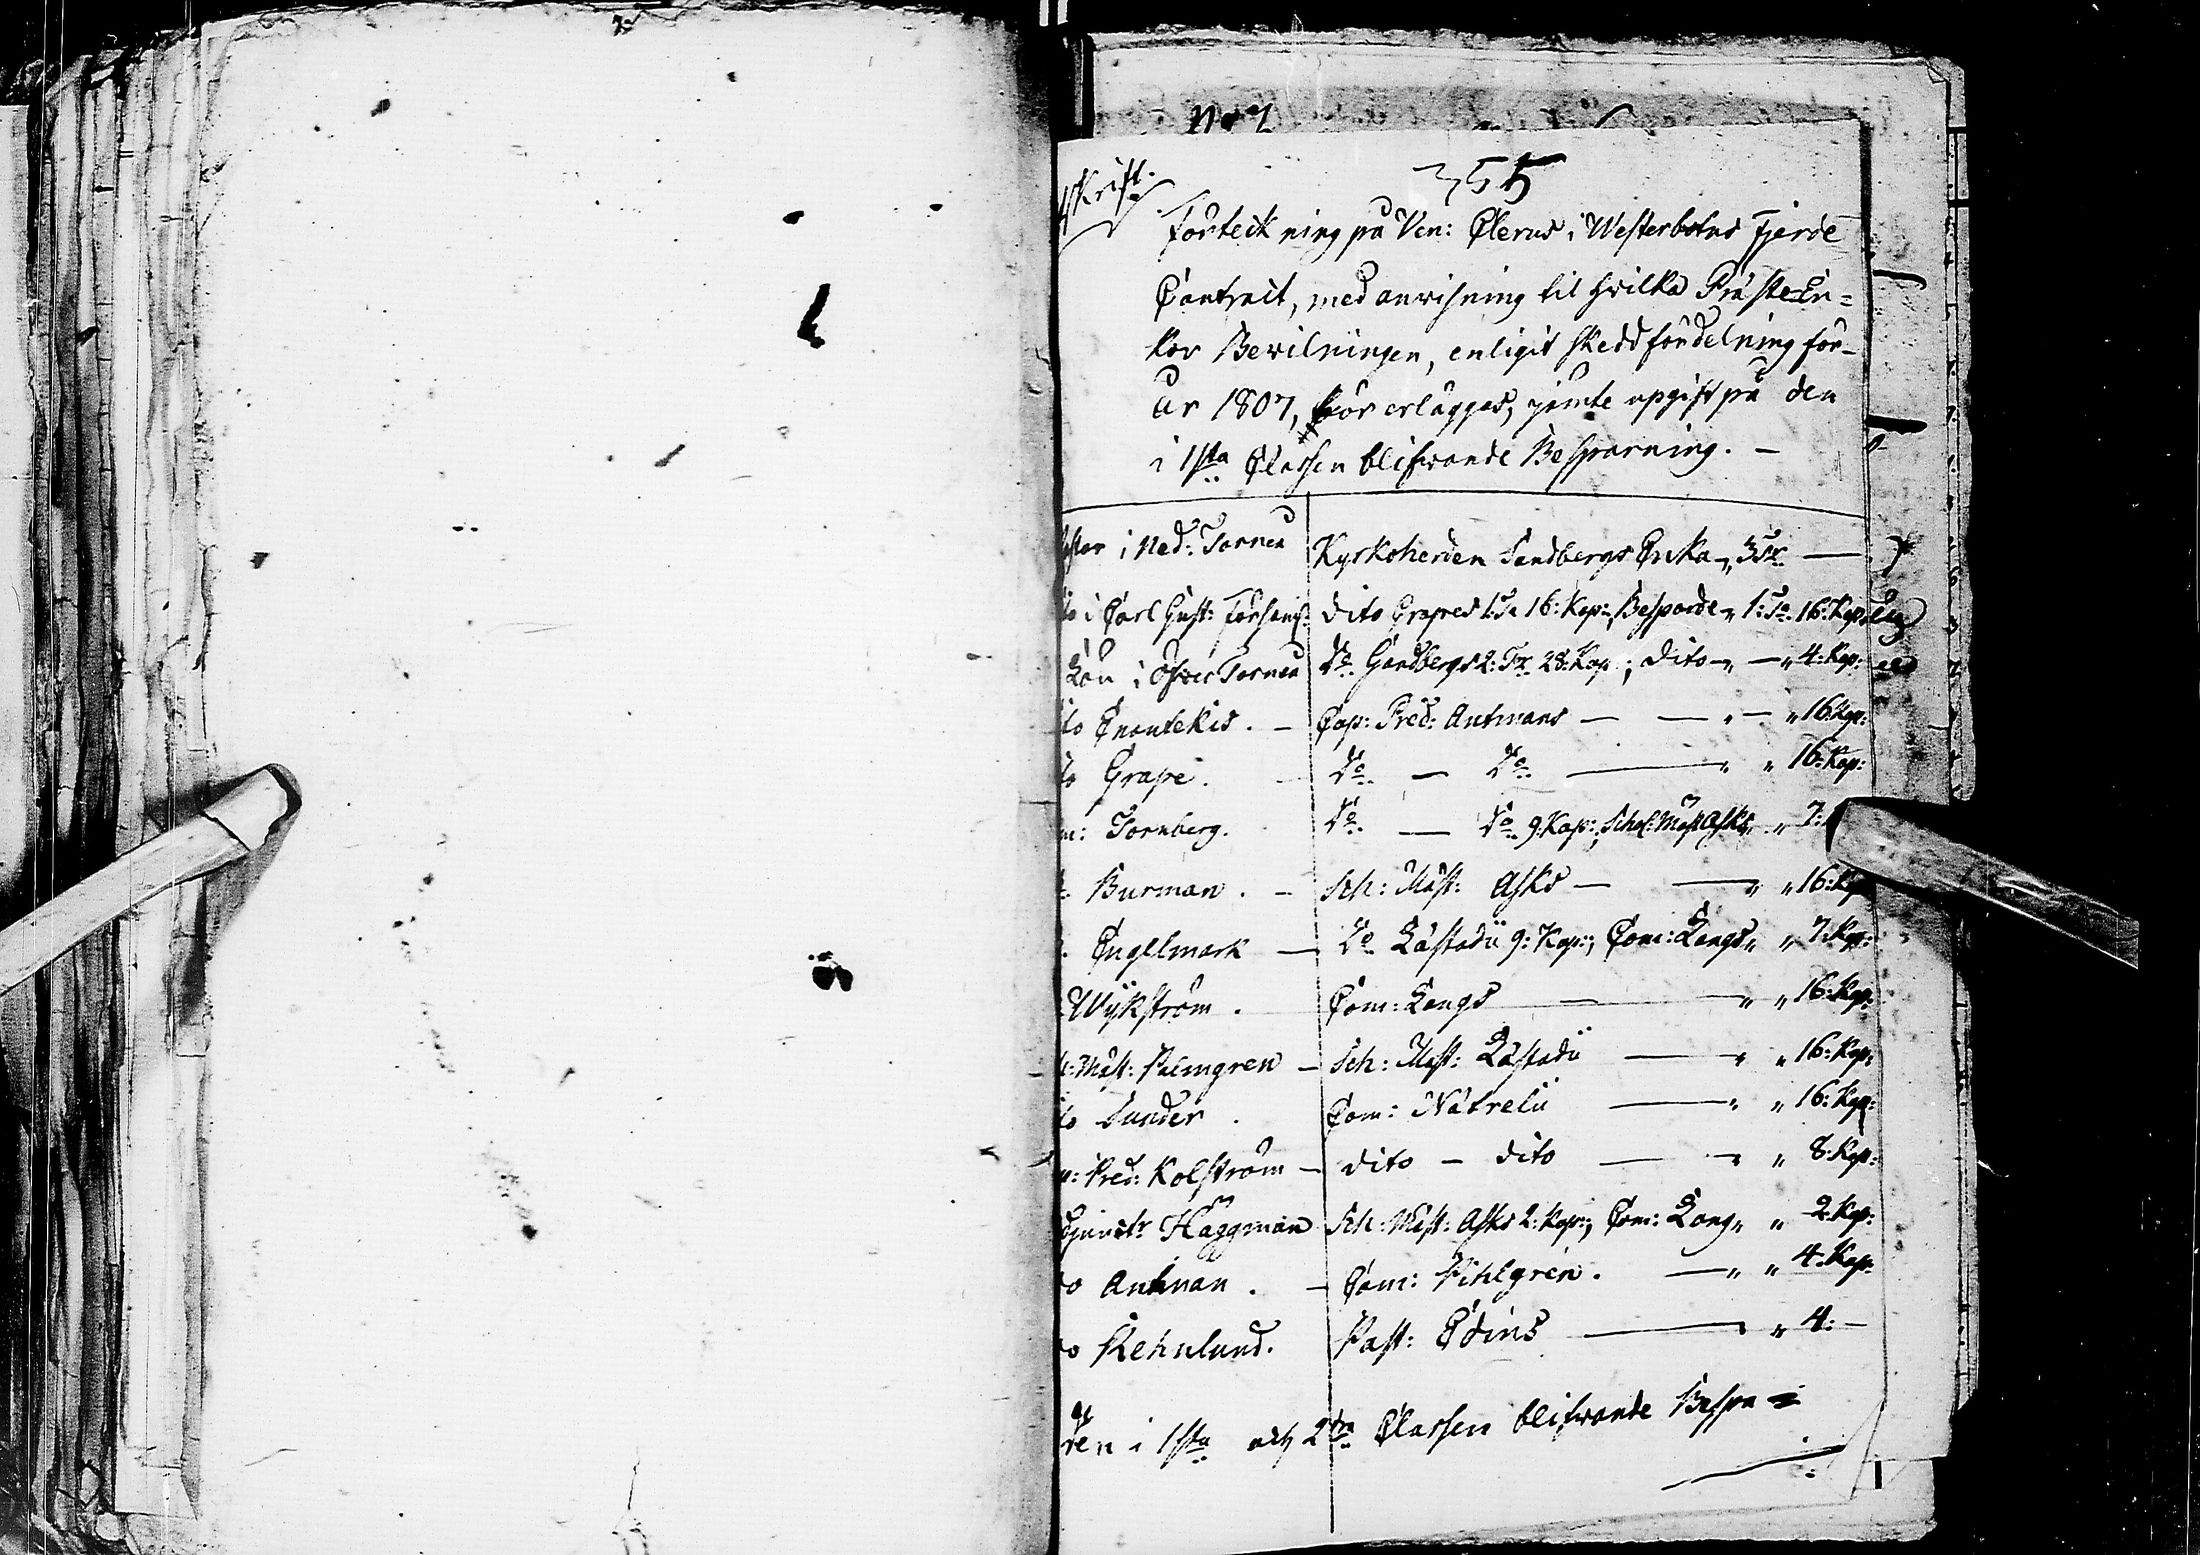 No 2
355
fskrift.
Förteckning på Ven: Clerus i Westerbotns Fjerde
Contract, med anvisning til hvilka Präste-En-
kor Bevilningen, enligit skedd fördelning för
år 1807, bör erläggas, jämte upgift på den
i 1sta Classen blifwande Besparning. —
i Ned: Tornea Kyrkoherden Sandbergs Enka „ 3 Tr —
to i Carl Gust: Församl: Dito Grapes 1: Tr 16: Kap:, Besparde „ 1: Tr. 16: Kap:
i Öfver Tornea Do Sandbergs 2: Tr. 28: Kap:; Dito „ — „ 4: Kap:
to Enontekis. — Cap: Pred: Antmans — — „ — „ 16: Kap:
to Grape. — Do — Do — „ „ 16: Kap:
m: Tornberg. Do — Do 9: Kap:, Schol: Mäst Asks „ „ 7:
Burman. — Sch: Mäst: Asks — — „ „ 16: Kap
Engelmark — Do Læstadii 9: Kap:; Com: Langs „ „ 7: Kap:
Wykström. Com: Langs — — „ „ 16: Kap:
h: Mäst: Palmgren — Sch: Mäst: Læstadii — „ „ 16: Kap:
to Sunder. Com: Nätrelii — „ „ 16: Kap:
p: Pred: Kolström — Dito — Dito — „ „ 8: Kap:
djunctr Häggman Sch: Mäst: Asks 2: Kap:, Com: Lang „ „ 2: Kap:
to Antman. — Com: Pihlgren. — „ „ 4: Kap:
to Rehnlund. Past: Edins — „ 4: —
den i 1sta och 2dra Classen blifwande Bespa